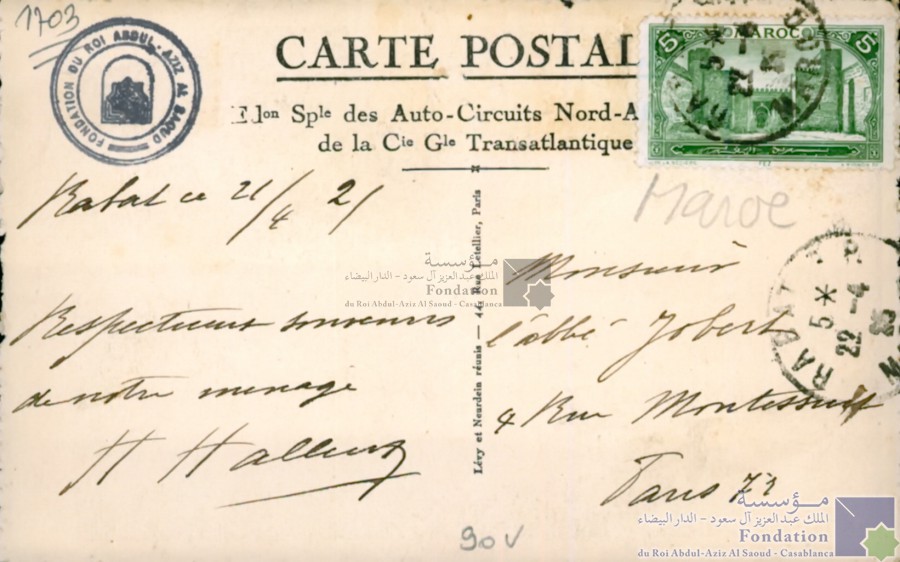 1703
FONDATION DU ROI ABDUL-AZIZ AL SAOUD
CARTE POSTAL
Elon Sple des Auto-Circuits Nord-A
de la Cie Gle Transatlantique
5 MAROC 5
RABAT 5* 22-4 MAROC
Maroc
Rabat ce 21/4 25
Respectueux souvenirs
de notre menage
Lévy et Neurdein réunis — 44, Rue Letellier, Paris
Monsieur
l'abbé Jobert
4 Rue
Paris
RABAT 5* 22-4 25
مؤسسة
الملك عبد العزيز آل سعود - الدار البيضاء
Fondation
du Roi Abdul-Aziz Al Saoud - Casablanca
90V
مؤسسة
الملك عبد العزيز آل سعود - الدار البيضاء
Fondation
du Roi Abdul-Aziz Al Saoud - Casablanca